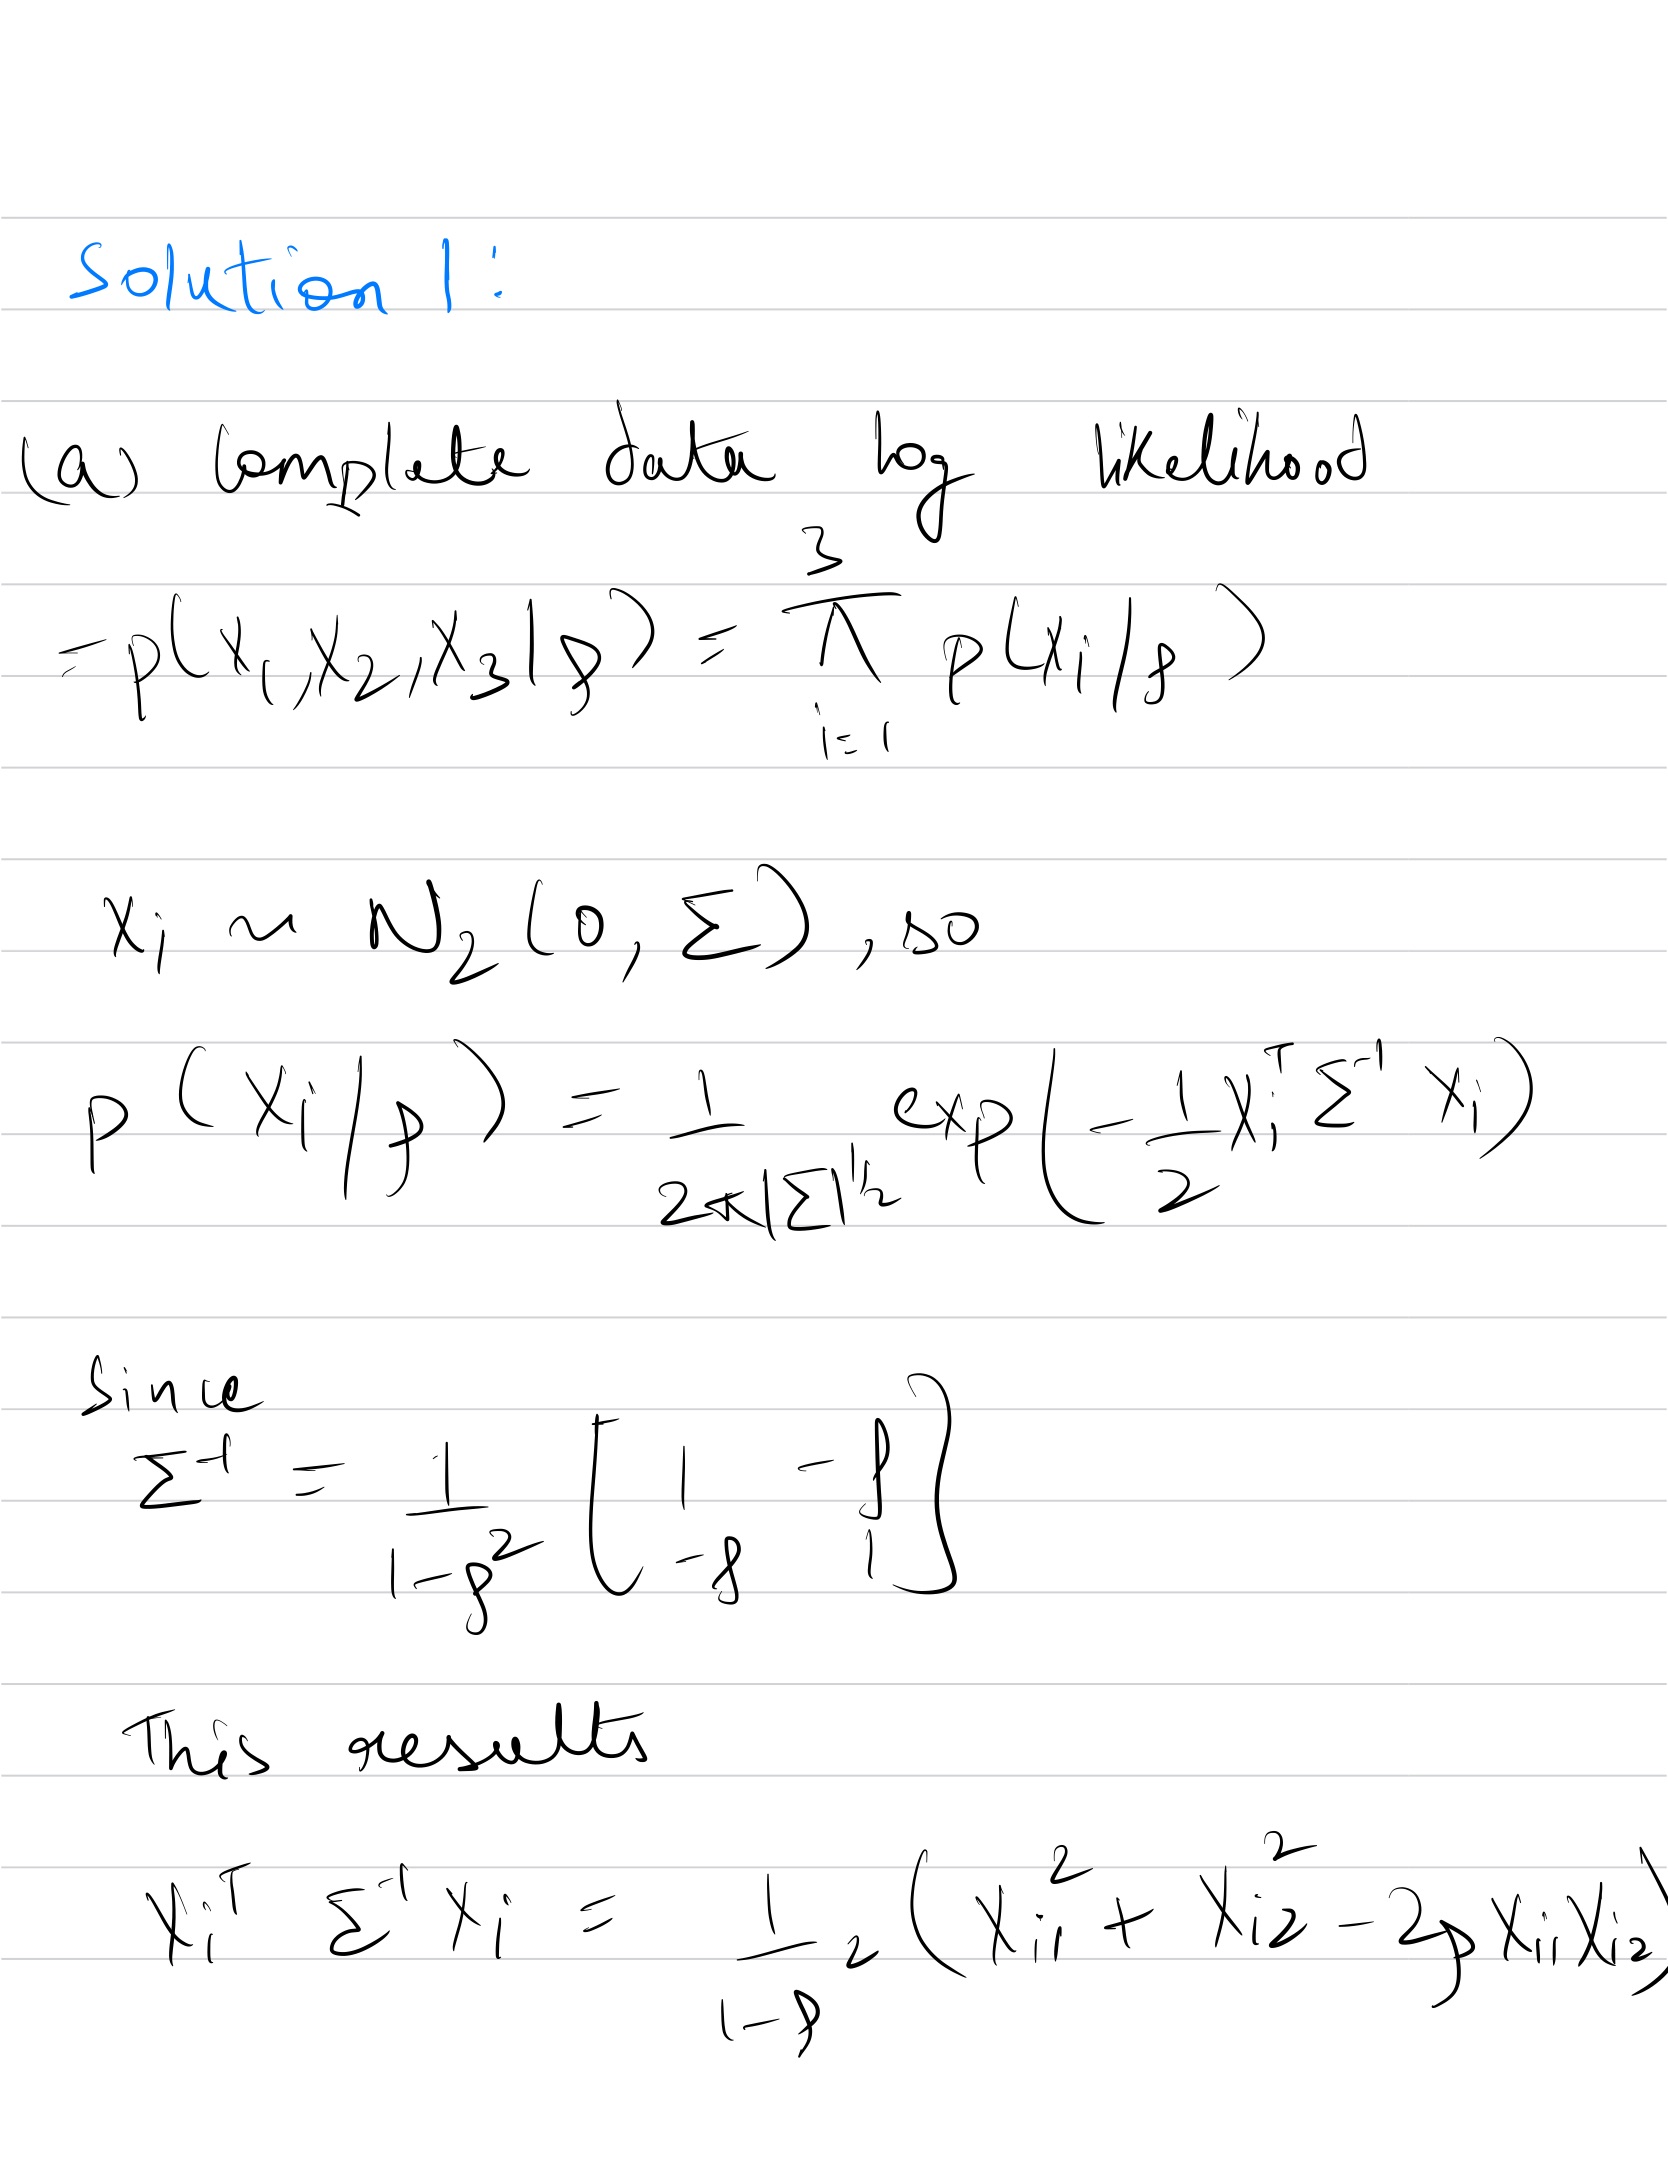 Solution 1:
(a) Complete data log likelihood
= p(X₁, X₂, X₃ | ρ) = ∏_{i=1}^{3} p(Xᵢ/ρ)
Xᵢ ~ N₂(0, Σ), so
p(Xᵢ/ρ) = 1/(2π|Σ|^{1/2}) exp(-1/2 Xᵢᵀ Σ⁻¹ Xᵢ)
Since
Σ⁻¹ = 1/(1-ρ²) [1 -ρ; -ρ 1]
This results
Xᵢᵀ Σ⁻¹ Xᵢ = 1/(1-ρ²) (Xᵢ₁² + Xᵢ₂² - 2ρ Xᵢ₁Xᵢ₂)